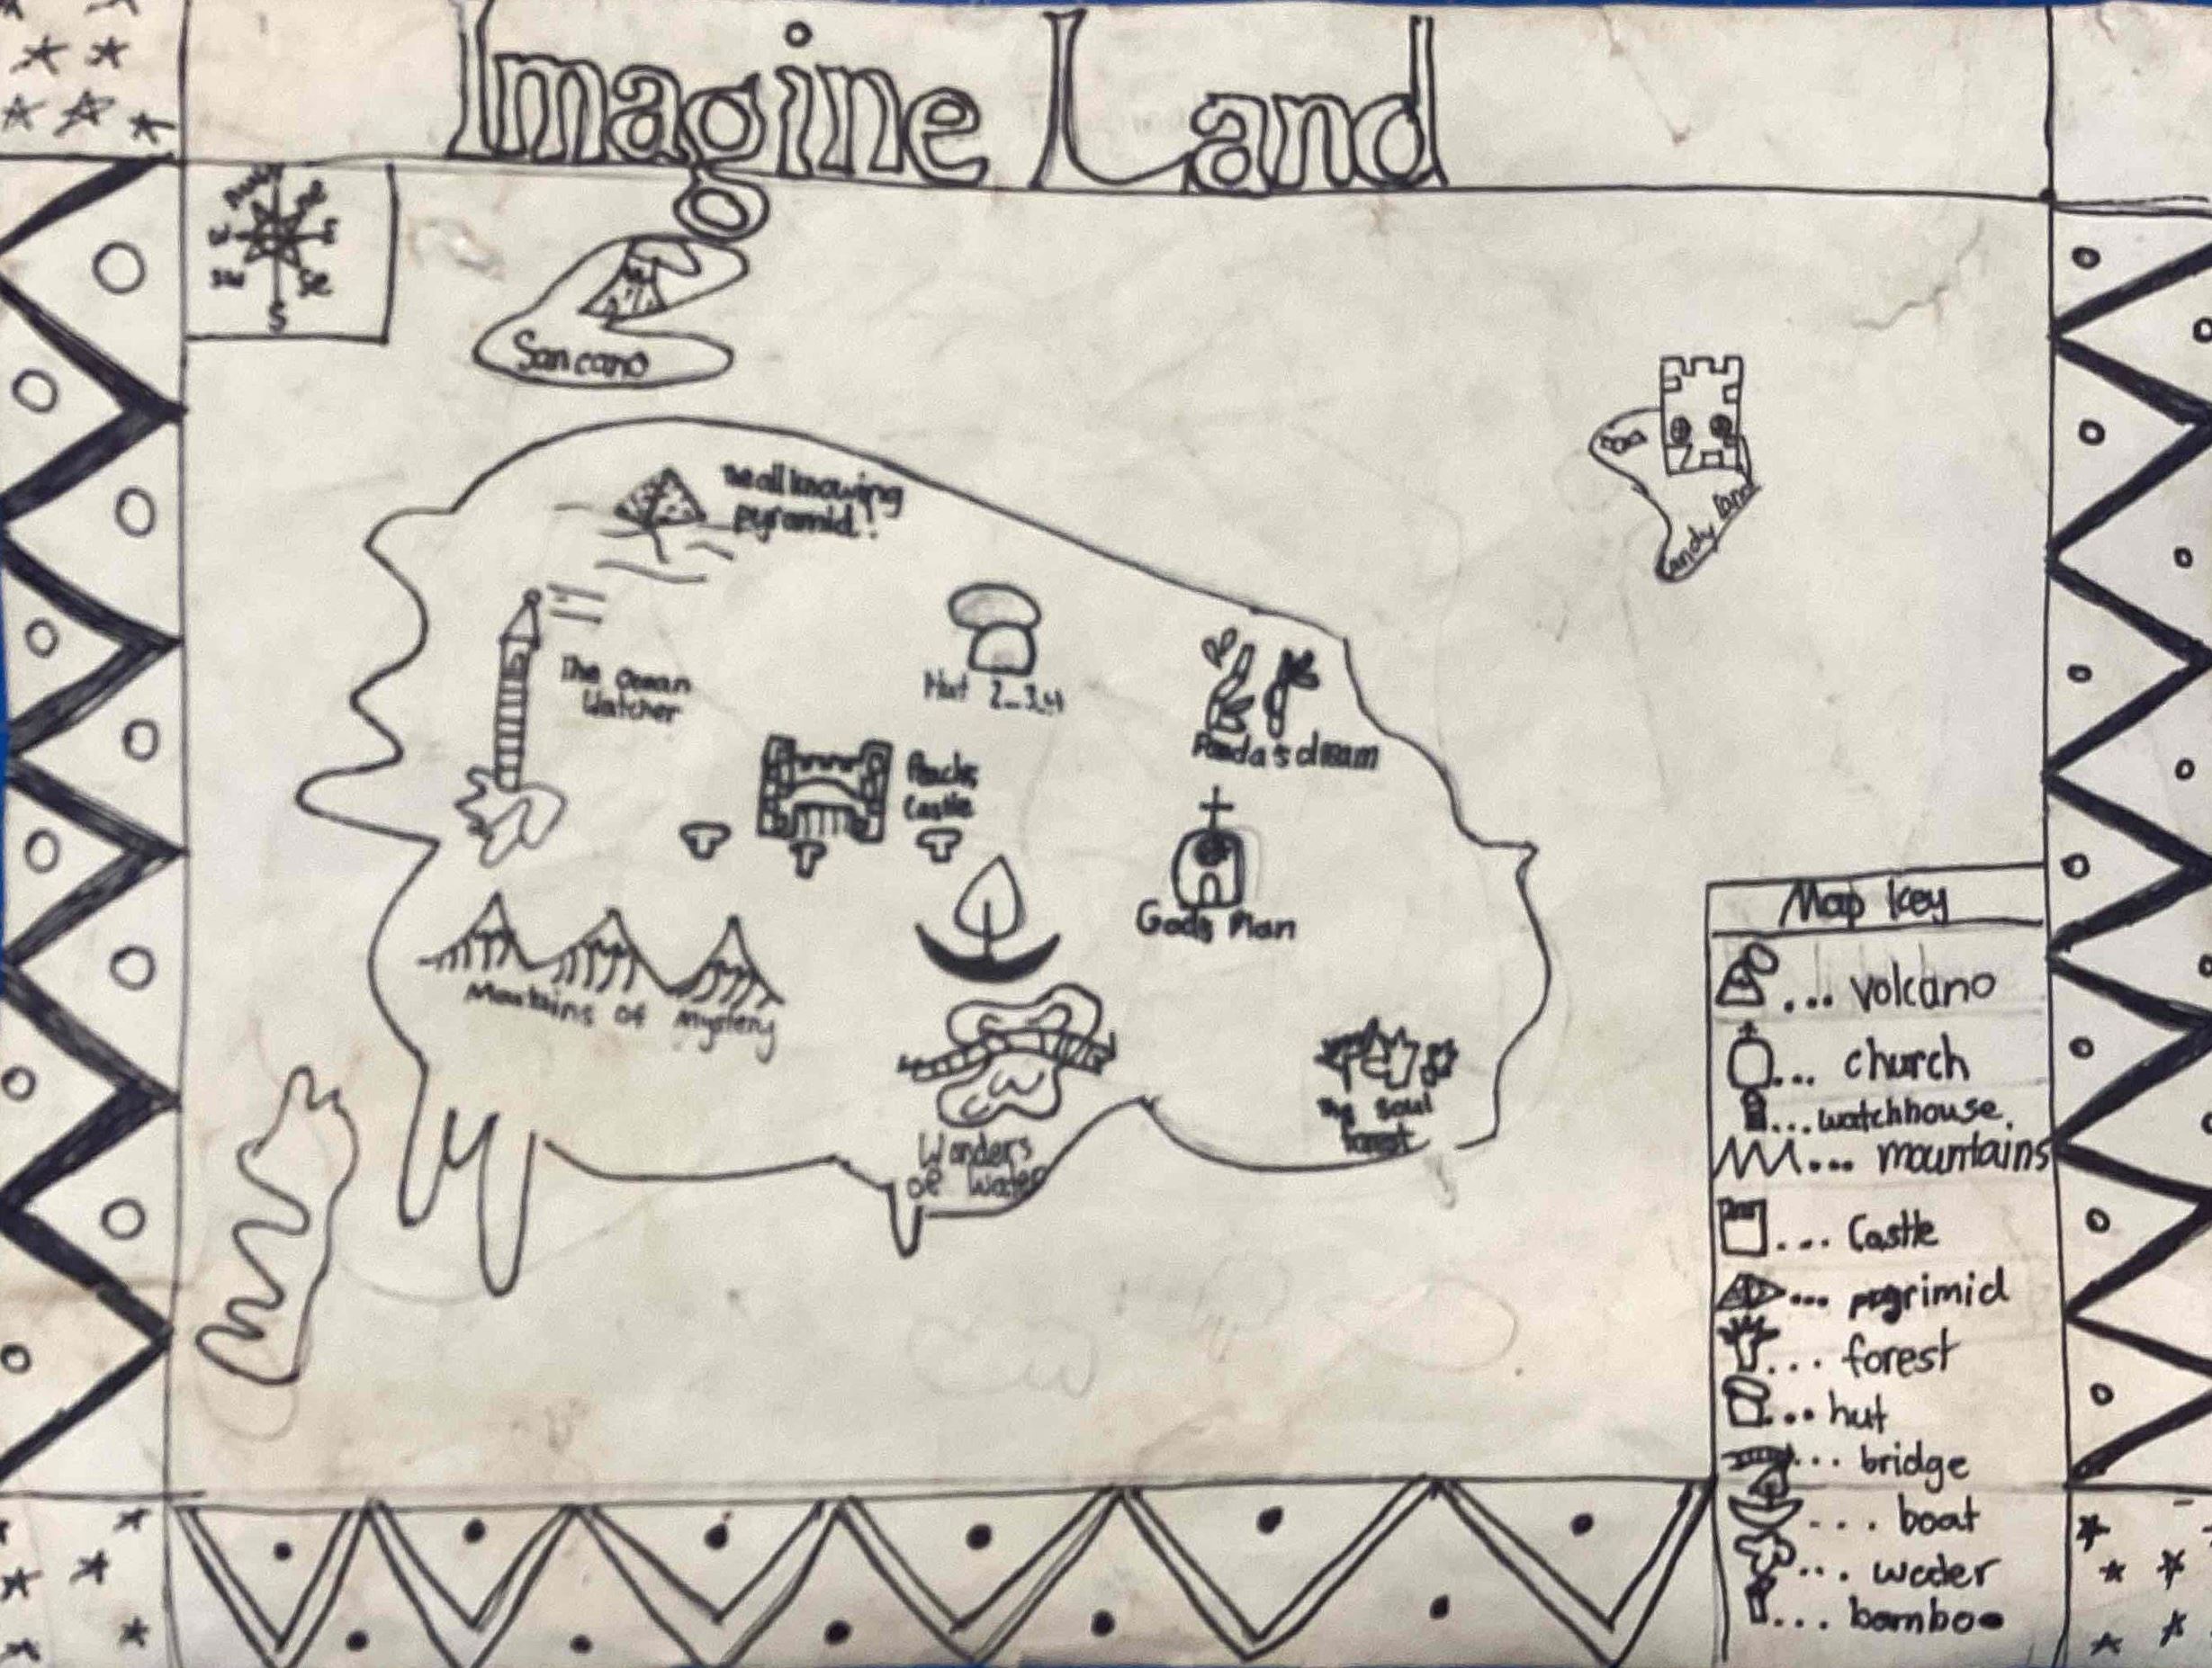 Imagine Land
W E
SW Se
S
Sancano
The all knowing
pyramid!
The Ocean
Watcher
Hut 2...3..4
Panda's dream
Castle
God's Plan
Mountains of Mystery
Wonders
of Water
The Soul
forest
Map key
... volcano
... church
... watchhouse.
... mountains
... Castle
... pygrimid
... forest
... hut
... bridge
... boat
... water
... bamboo